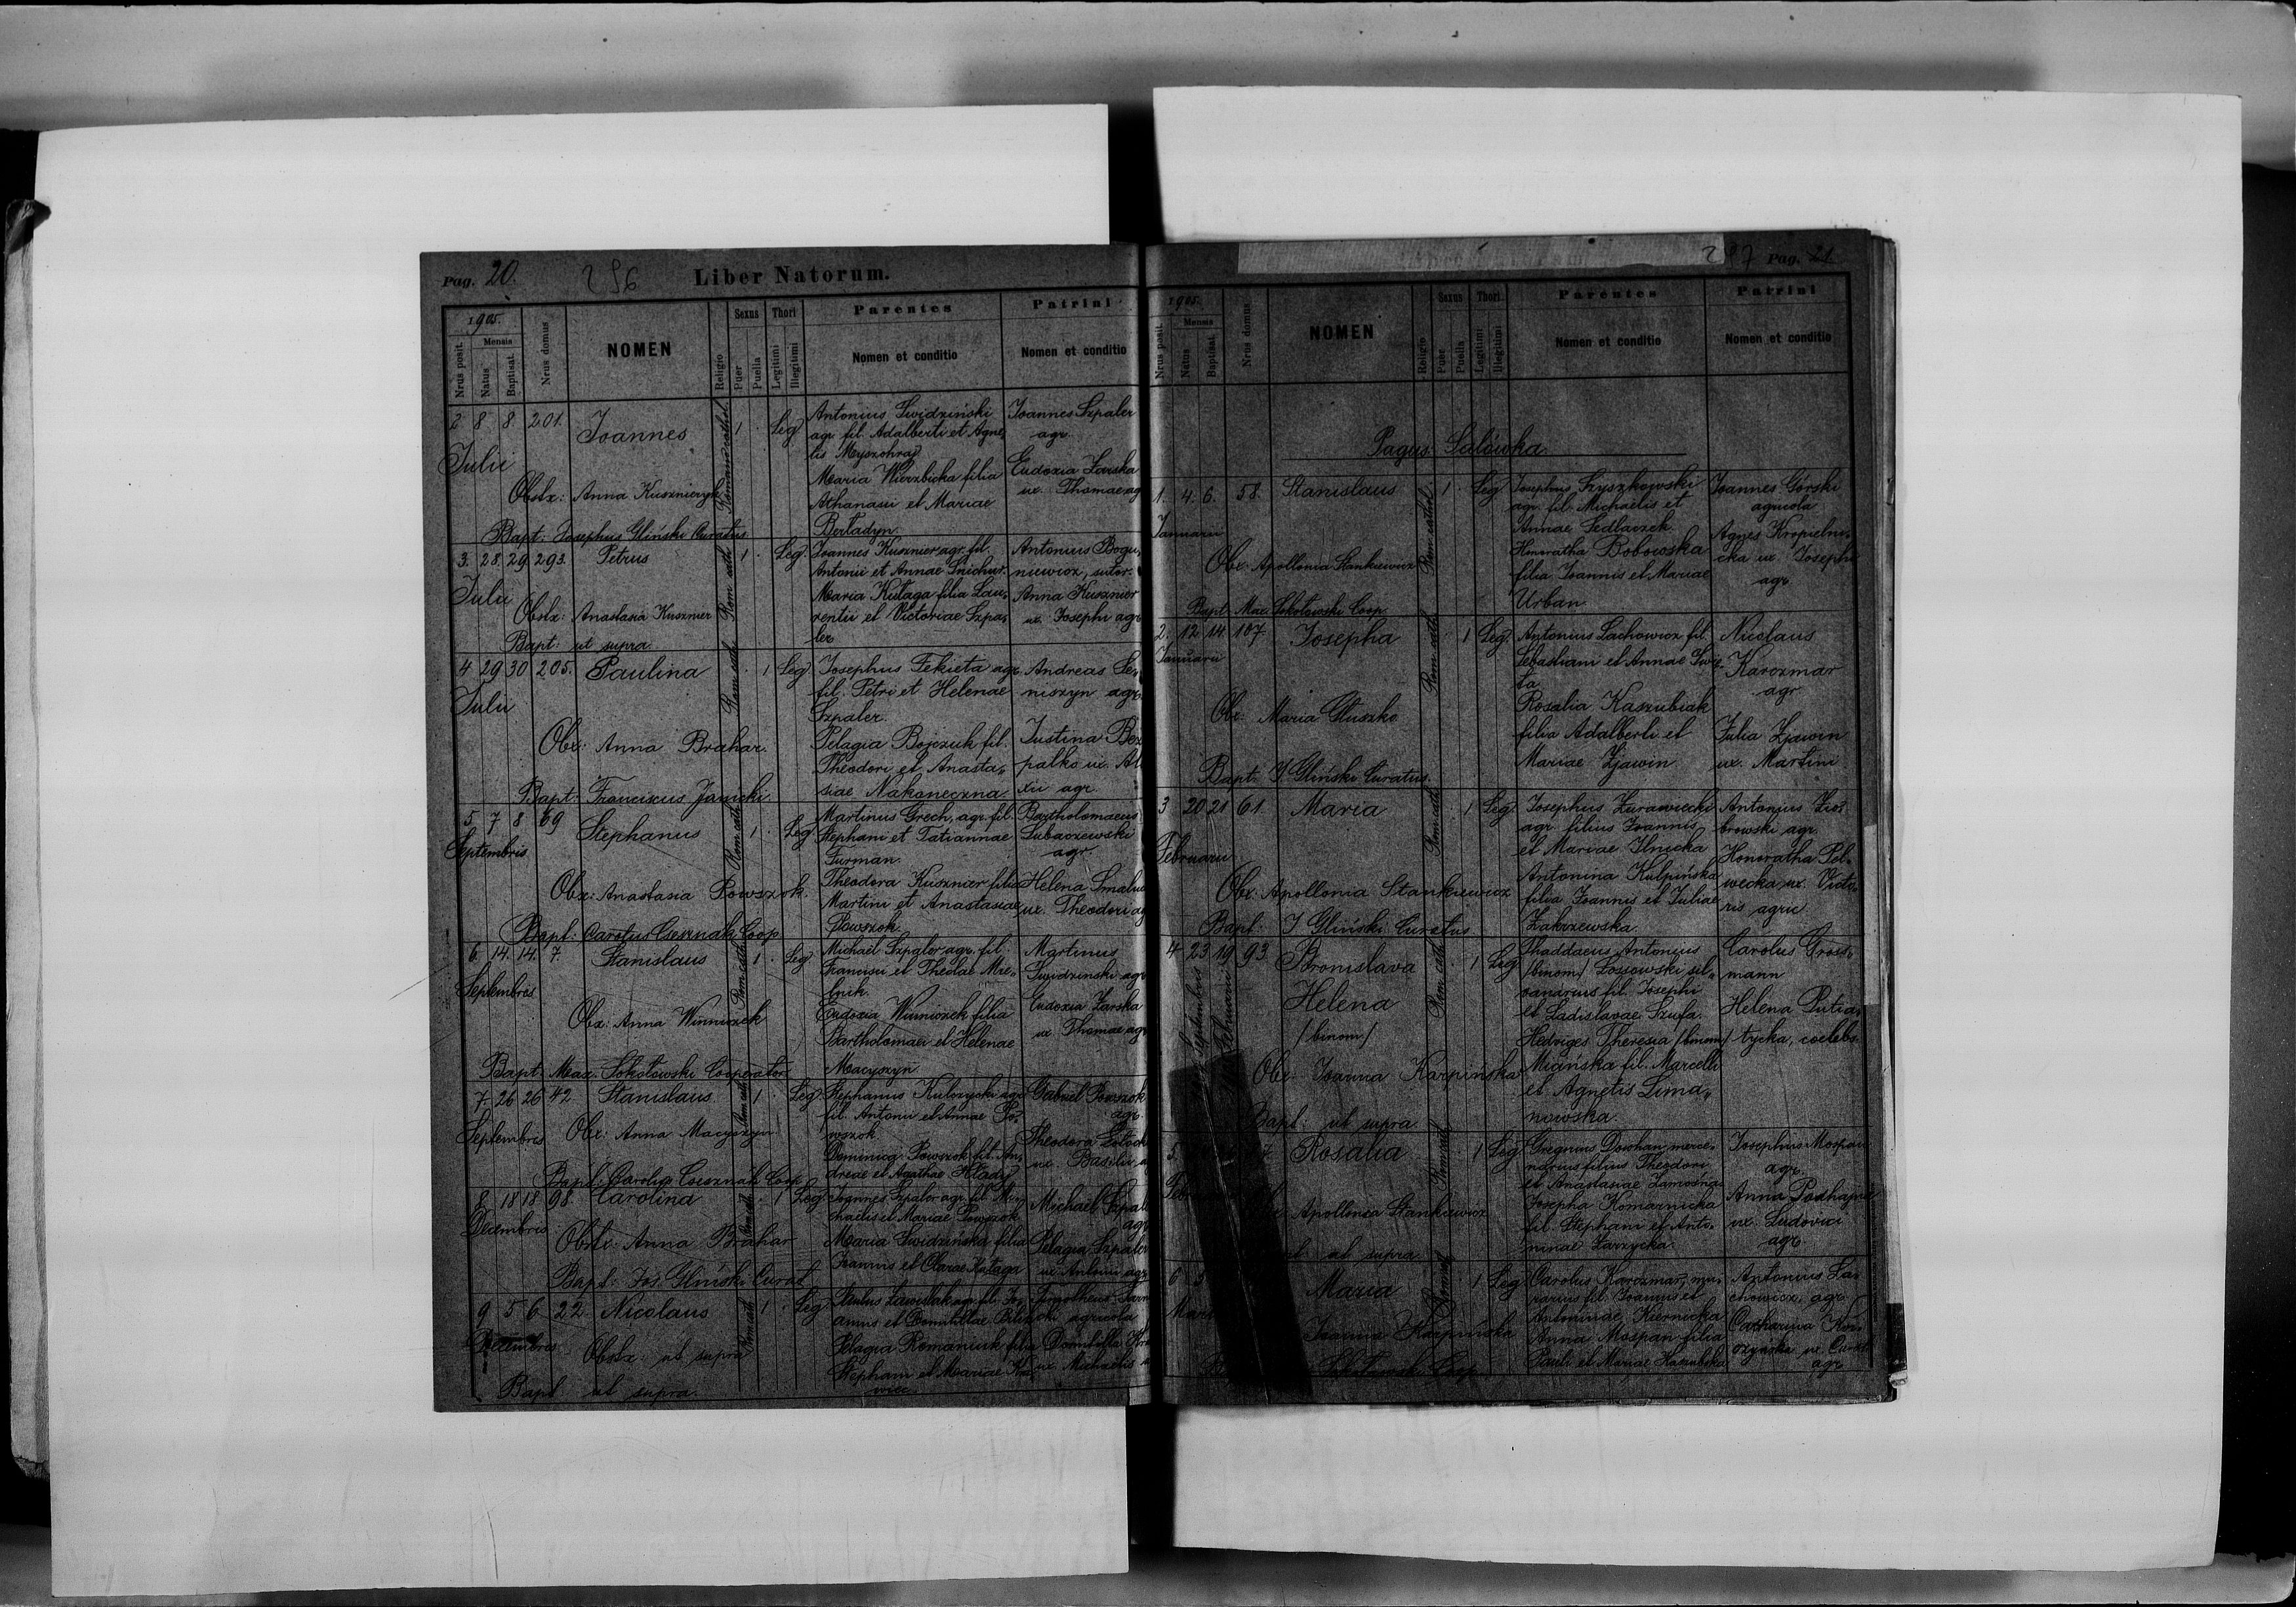 Pag. 20. 296 Liber Natorum.
1905.
Nrus posit.
Mensis
Natus
Baptisat.
Nrus domus
NOMEN
Religio
Sexus
Puer
Puella
Thori
Legitimi
Illegitimi
Parentes
Nomen et conditio
Patrini
Nomen et conditio
2 8 8 201. Joannes 1 Leg
Julii
Antonius Swidziński
agr. fil. Adalberti et Agne,
tis Myszohrad
Maria Wierzbicka filia
Athanasii et Mariae
Joannes Szpaler
agr.
Eudoxia Zarska
ux. Thomae ag
Obstx: Anna Kusznieryk
Bapt: Josephus Gliński Curatus
3. 28. 29. 293. Petrus Rom cath 1 Leg
Julii
Joannes Kusznier agr. fil.
Antonii et Annae
Maria Kutaga filia Lau,
rentii et Victoriae Szpa,
ler
Antonius Bogu,
niewicz, sutor.
Anna Kusznier
ux. Josephi agr
Obstx: Anastasia Kusznier
Bapt: ut supra.
4 29 30 205. Paulina Rom cath 1 Leg
Julii
Josephus Fekieta agr.
fil. Petri et Helenae
Szpaler.
Pelagia Bojczuk fil.
Theodori et Anasta,
siae Nakoneczna.
Andreas Se,
niszyn agr.
Justina Bez
palko ux. Al
xii agr.
Obx: Anna Brahar.
Bapt: Franciscus Janicki.
5 7 8 69 Stephanus Rom cath 1 Leg
Septembris
Martinus Grech, agr. fil.
Stephani et Tatiannae
Furman.
Theodora Kusznier filia
Martini et Anastasiae
Powszok.
Bartholomaeus
Lubaczewski
agr.
Helena Smaluc
ux. Theodori ag
Obx: Anastasia Powszok.
Bapt: Carolus Csesznak Coop
6. 14. 14. 7. Stanislaus Rom cath 1 Leg
Septembris
Michael Szpaler agr. fil.
Francisci et Theclae
Eudoxia Winniczek filia
Bartholomaei et Helenae
Macyszyn
Martinus
Swidzinski agr
Eudoxia Zarska
ux. Thomae agr
Obx: Anna Winniczek
Bapt: Max. Sokołowski Cooperator
7. 26 26 42 Stanislaus 1 Leg
Septembris
Stephanus Kulczycki agr
fil. Antonii et Annae Po,
wszok
Dominica Powszok fil. An,
dreae et Agathae Hlady
Gabriel Powszok
agr.
Theodora
ux. Basilii
Obx: Anna Macyszyn
Bapt: Carolus Csesznak Coop
8 18 18 98. Carolina 1 Leg
Decembris
Joannes Szpaler agr. fil. Mi,
chaelis et Mariae Powszok
Maria Swidzińska filia
Joannis et Clarae Kutaga
Michael Szpal
agr
Pelagia Szpaler
ux. Antonii agr.
Obstx: Anna Brahar
Bapt: Jos. Gliński Curat
9 5 6 22 Nicolaus Rom cath 1 Leg
Decembris
agr. fil. Jo,
annis et Domitillae
Pelagia Romaniuk filia
Stephani et Mariae
Timotheus
agricola
Domitilla
ux. Michaelis
Obstx: ut supra
Bapt ut supra.
297 Pag. 21.
1905.
Nrus posit.
Mensis
Natus
Baptisat.
Nrus domus
NOMEN
Religio
Sexus
Puer
Puella
Thori
Legitimi
Illegitimi
Parentes
Nomen et conditio
Patrini
Nomen et conditio
Pagus Salówka
1. 4. 6. 58. Stanislaus Rom. cathol. 1 Leg
Januarii
Josephus Szyszkowski
agr. fil. Michaelis et
Annae Sedlaczek.
Honoratha Bobowska
filia Joannis et Mariae
Urban
Joannes Górski
agricola
Agnes Kropielni,
cka ux. Josephi
agr.
Obx: Apollonia Stankiewicz
Bapt. Max. Sokołowski Coop.
2. 12 14 107. Josepha Rom. cath. 1 Leg
Januarii
Antonius Lachowicz fil.
Sebastiani et Annae
Rosalia Kaszubiak
filia Adalberti et
Mariae Zjawin
Nicolaus
Karczmar
agr
Julia Zjawin
ux. Martini
Obx: Maria Głuszko
Bapt: J. Gliński Curatus.
3 20 21 61. Maria Rom. cath. 1 Leg
Februarii
Josephus Zurawiecki
agr. filius Joannis
et Mariae Ilnicka
Antonina Kulpińska
filia Joannis et Juliae
Zakrzewska.
Antonius
browski agr.
Honoratha Pel,
wecka, ux. Victo,
ris agric.
Obx: Apollonia Stankiewicz
Bapt: J. Gliński Curatus
4 23 19 93 Bronislava Rom. cath. 1 Leg
Septembris
Februarii
Helena
/binom/
Thaddaeus Antonius
/binom/ Lossowski sil,
vanarius fil. Josephi
et Ladislavae Szufa.
Hedviges Theresia /binom/
Miańska fil. Marcelli
et Agnetis Lima,
nowska
Carolus Gross,
mann
Helena Putia,
tycka, coelebs.
Obx: Joanna Karpińska
Bapt: ut supra
5. Rosalia Rom. cath. 1 Leg
Gregorius Dowhan, merce,
narius filius Theodori
et Anastasiae Zamosna
Josepha Komarnicka
fil. Stephani et Anto,
ninae Zarzycka
Josephus Mospan
agr.
Anna Podhajna
ux. Ludovici
agr
Apollonia Stankiewicz
ut supra
6 Maria 1 Leg
Carolus Karczmar, mu,
rarius fil. Joannis et
Antoninae Kiernicka
Anna Mospan filia
Pauli et Mariae Kaszubska
Antonius La,
chowicz, agr.
Catharina Kor,
czyńska ux. Caroli
agr
Joanna Karpińska
Sokołowski Coop